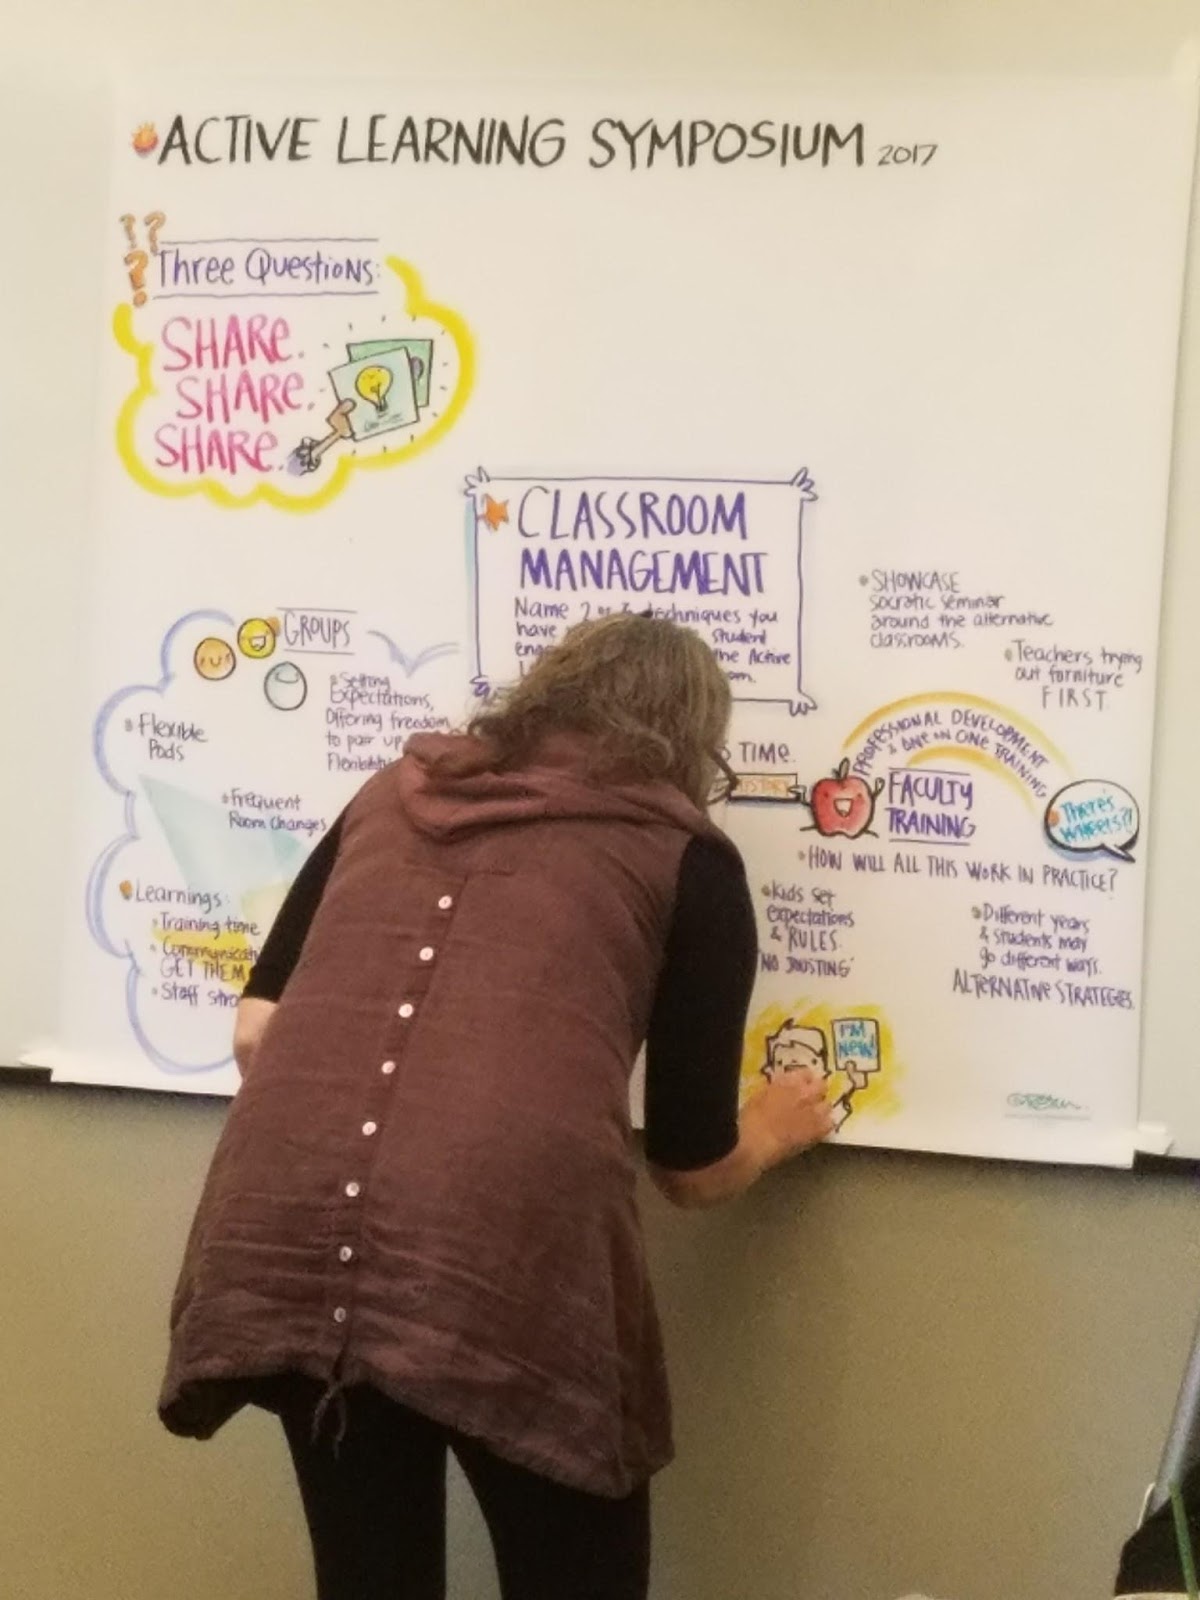 ACTIVE LEARNING SYMPOSIUM 2017
???
Three Questions:
SHARE.
SHARE.
SHARE.
CLASSROOM
MANAGEMENT
Name 2 techniques you
have student
the Active
GROUPS
Setting
Expectations,
Offering freedom
to pair up
Flexible
Pods
Frequent
Room Changes
Learnings:
Training time
GET THEM
Staff
SHOWCASE
Socratic seminar
around the alternative
classrooms.
Teachers trying
out forniture
FIRST.
TIME.
PROFESSIONAL DEVELOPMENT
& ONE ON ONE TRAINING
FACULTY
TRAINING
There's
wheels?!
HOW WILL ALL THIS WORK IN PRACTICE?
Kids set
expectations
& RULES.
'NO JOUSTING'
Different years
& students may
go different ways.
ALTERNATIVE STRATEGIES.
I'M
New!